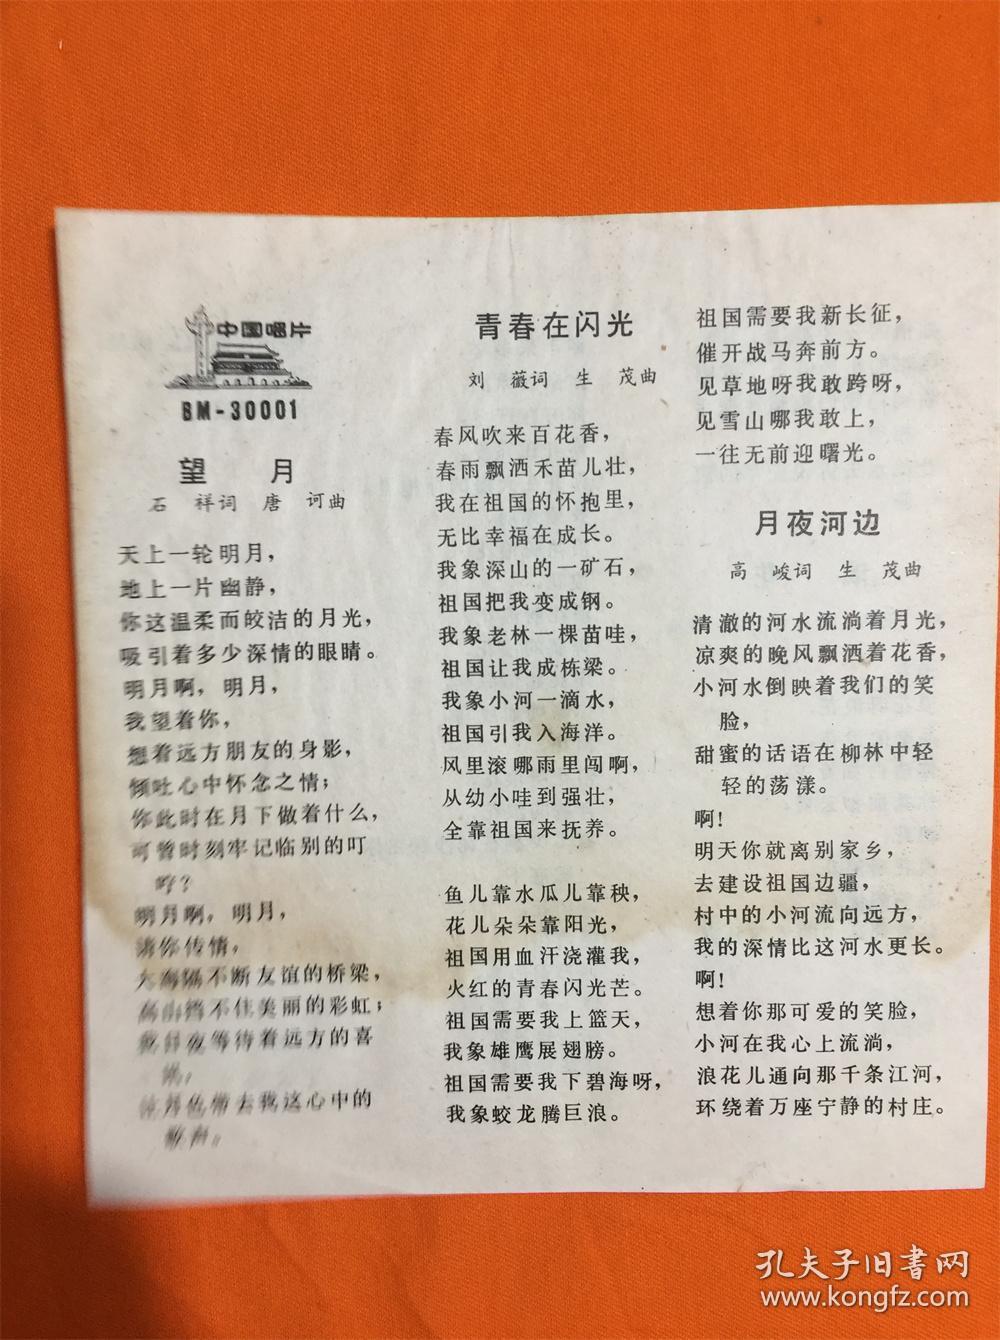 中国唱片
BM-30001
望 月
石 祥词 唐 诃曲
天上一轮明月，
地上一片幽静，
你这温柔而皎洁的月光，
吸引着多少深情的眼睛。
明月啊，明月，
我望着你，
想着远方朋友的身影，
倾吐心中怀念之情；
你此时在月下做着什么，
可暂时刻牢记临别的叮
咛？
明月啊，明月，
请你传情，
大海隔不断友谊的桥梁，
高山挡不住美丽的彩虹；
我日夜等待着远方的喜
讯，
去我这心中的
歌声。
青春在闪光
刘 薇词 生 茂曲
春风吹来百花香，
春雨飘洒禾苗儿壮，
我在祖国的怀抱里，
无比幸福在成长。
我象深山的一矿石，
祖国把我变成钢。
我象老林一棵苗哇，
祖国让我成栋梁。
我象小河一滴水，
祖国引我入海洋。
风里滚哪雨里闯啊，
从幼小哇到强壮，
全靠祖国来抚养。
鱼儿靠水瓜儿靠秧，
花儿朵朵靠阳光，
祖国用血汗浇灌我，
火红的青春闪光芒。
祖国需要我上篮天，
我象雄鹰展翅膀。
祖国需要我下碧海呀，
我象蛟龙腾巨浪。
祖国需要我新长征，
催开战马奔前方。
见草地呀我敢跨呀，
见雪山哪我敢上，
一往无前迎曙光。
月夜河边
高 峻词 生 茂曲
清澈的河水流淌着月光，
凉爽的晚风飘洒着花香，
小河水倒映着我们的笑
脸，
甜蜜的话语在柳林中轻
轻的荡漾。
啊!
明天你就离别家乡，
去建设祖国边疆，
村中的小河流向远方，
我的深情比这河水更长。
啊!
想着你那可爱的笑脸，
小河在我心上流淌，
浪花儿通向那千条江河，
环绕着万座宁静的村庄。
孔夫子旧書网
www.kongfz.com